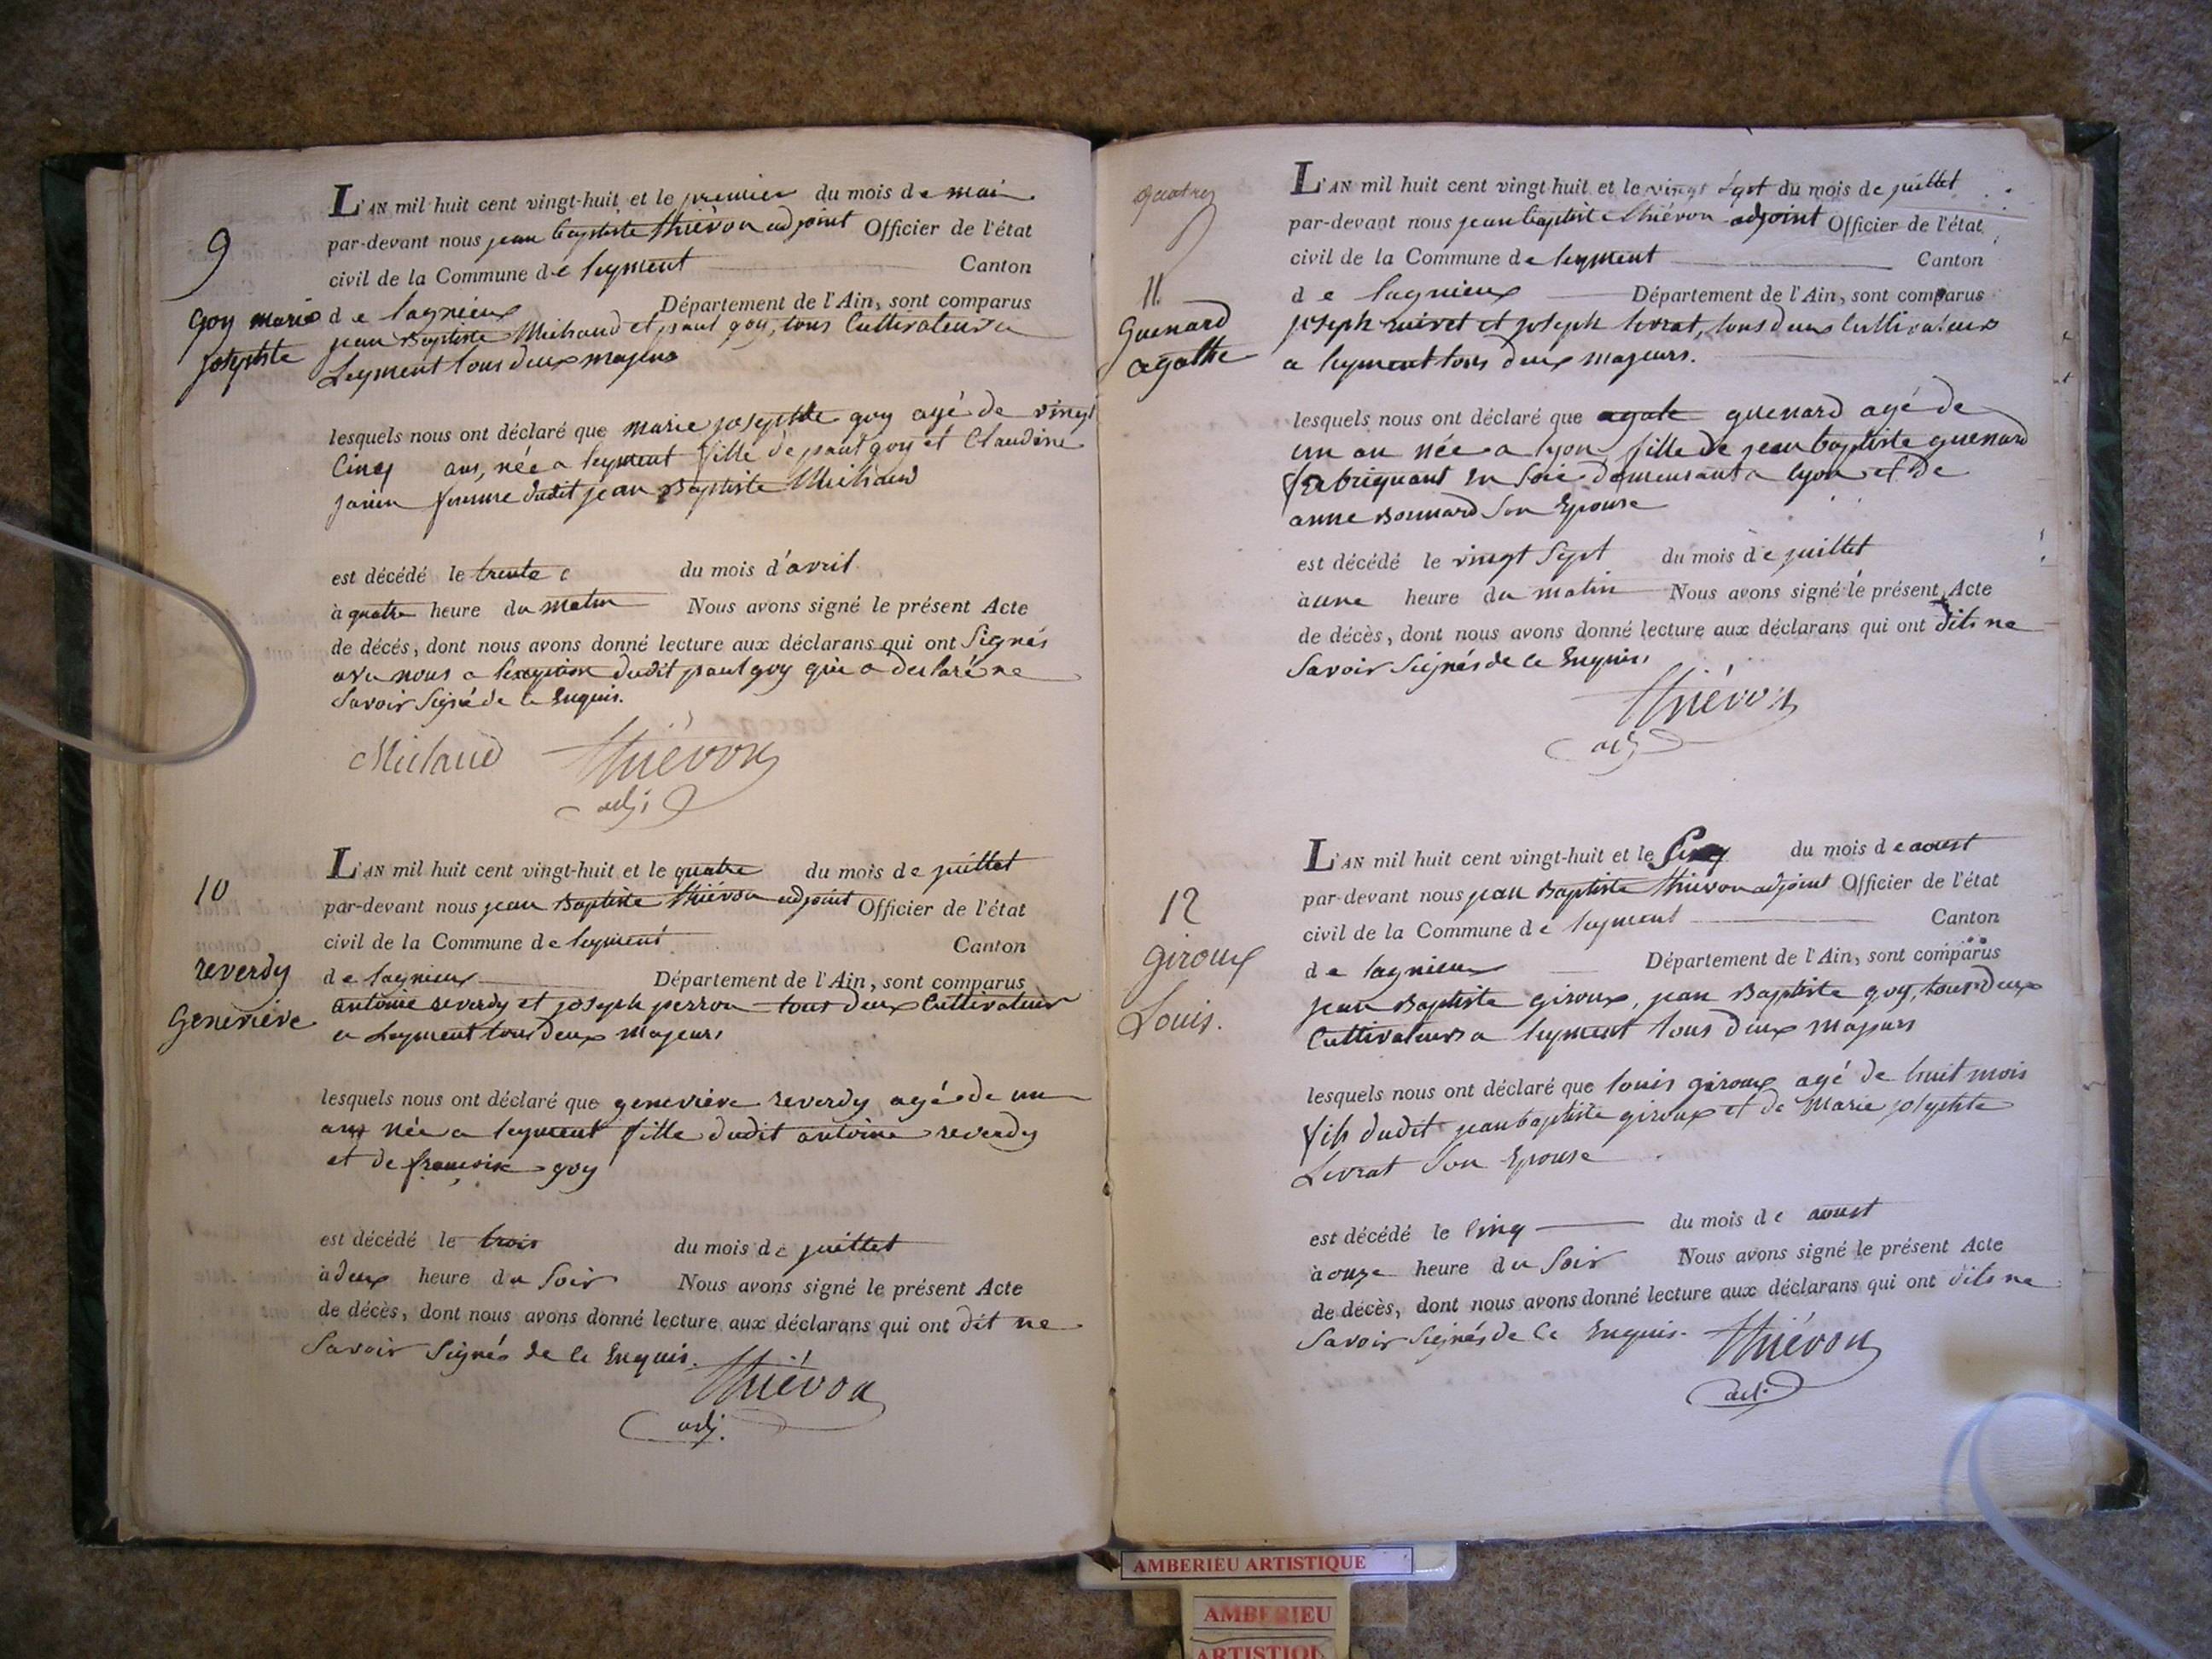 9
Goy marie
josephte
L'AN mil huit cent vingt-huit et le premier du mois de mai
par-devant nous jean baptiste thiévon adjoint Officier de l'état
civil de la Commune de leyment Canton
de lagnieux Département de l'Ain, sont comparus
jean Baptiste Michaud et paul goy, tous Cultivateurs a
Leyment tous deux majeurs
lesquels nous ont déclaré que marie josephte goy agé de vingt
Cinq ans, née a leyment fille de paul goy et Claudine
janin femme dudit jean Baptiste Michaud
est décédé le trente du mois d'avril
à quatre heure du matin Nous avons signé le présent Acte
de décès, dont nous avons donné lecture aux déclarans qui ont Signés
avec nous a lexception dudit paul goy qui a declaré ne
Savoir Signé de ce Enquis.
Michaud thiévon
adj
10
reverdy
Genevieve
L'AN mil huit cent vingt-huit et le quatre du mois de juillet
par-devant nous jean Baptiste thiévon adjoint Officier de l'état
civil de la Commune de leyment Canton
de lagnieux Département de l'Ain, sont comparus
antoine reverdy et joseph perron tous deux Cultivateurs
a Leyment tous deux majeurs
lesquels nous ont déclaré que genevieve reverdy agée de un
an née a leyment fille dudit antoine reverdy
et de françoise goy
est décédé le trois du mois de juillet
à deux heure du Soir Nous avons signé le présent Acte
de décès, dont nous avons donné lecture aux déclarans qui ont dit ne
Savoir Signés de ce Enquis.
thiévon
adj.
quatre
11
Guenard
agathe
L'AN mil huit cent vingt-huit et le vingt Sept du mois de juillet
par-devant nous jean baptiste thiévon adjoint Officier de l'état
civil de la Commune de leyment Canton
de lagnieux Département de l'Ain, sont comparus
joseph et joseph levrat, tous deux Cultivateurs
a leyment tous deux majeurs.
lesquels nous ont déclaré que agate guenard agé de
un an née a lyon fille de jean baptiste guenard
fabriquant en Soie demeurant a lyon et de
anne Bonnard Son Epouse
est décédé le vingt Sept du mois de juillet
à une heure du matin Nous avons signé le présent Acte
de décès, dont nous avons donné lecture aux déclarans qui ont dits ne
Savoir Signés de ce Enquis.
thiévon
adj
12
giroux
Louis.
L'AN mil huit cent vingt-huit et le Cinq du mois de aoust
par-devant nous jean Baptiste thiévon adjoint Officier de l'état
civil de la Commune de leyment Canton
de lagnieux Département de l'Ain, sont comparus
jean Baptiste giroux, jean Baptiste goy, tous deux
Cultivateurs a leyment tous deux majeurs
lesquels nous ont déclaré que louis giroux agé de huit mois
fils dudit jean baptiste giroux et de Marie josephte
Levrat Son Epouse
est décédé le Cinq du mois de aoust
à onze heure du Soir Nous avons signé le présent Acte
de décès, dont nous avons donné lecture aux déclarans qui ont dits ne
Savoir Signés de Ce Enquis. thiévon
adj.
AMBERIEU ARTISTIQUE
AMBERIEU